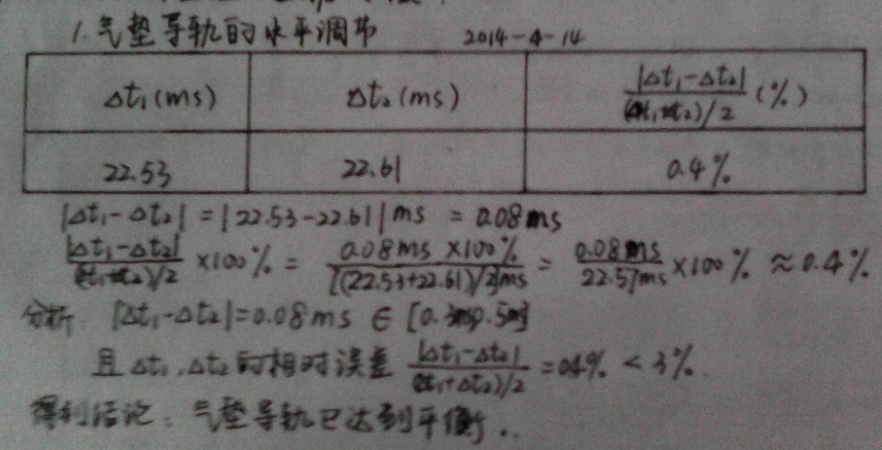 1. 气垫导轨的水平调节 2014-4-14
Δt₁(ms) Δt₂(ms) |Δt₁-Δt₂|/(Δt₁+Δt₂)/2 (%)
22.53 22.61 0.4%
|Δt₁-Δt₂| = |22.53-22.61| ms = 0.08ms
|Δt₁-Δt₂|/(Δt₁+Δt₂)/2 ×100% = 0.08ms ×100%/[(22.53+22.61)/2]ms = 0.08ms/22.57ms ×100% ≈ 0.4%
分析: |Δt₁-Δt₂|=0.08ms ∈ [0.3
且Δt₁,Δt₂的相对误差 |Δt₁-Δt₂|/(Δt₁+Δt₂)/2 = 0.4% < 3%.
得到结论: 气垫导轨已达到平衡.